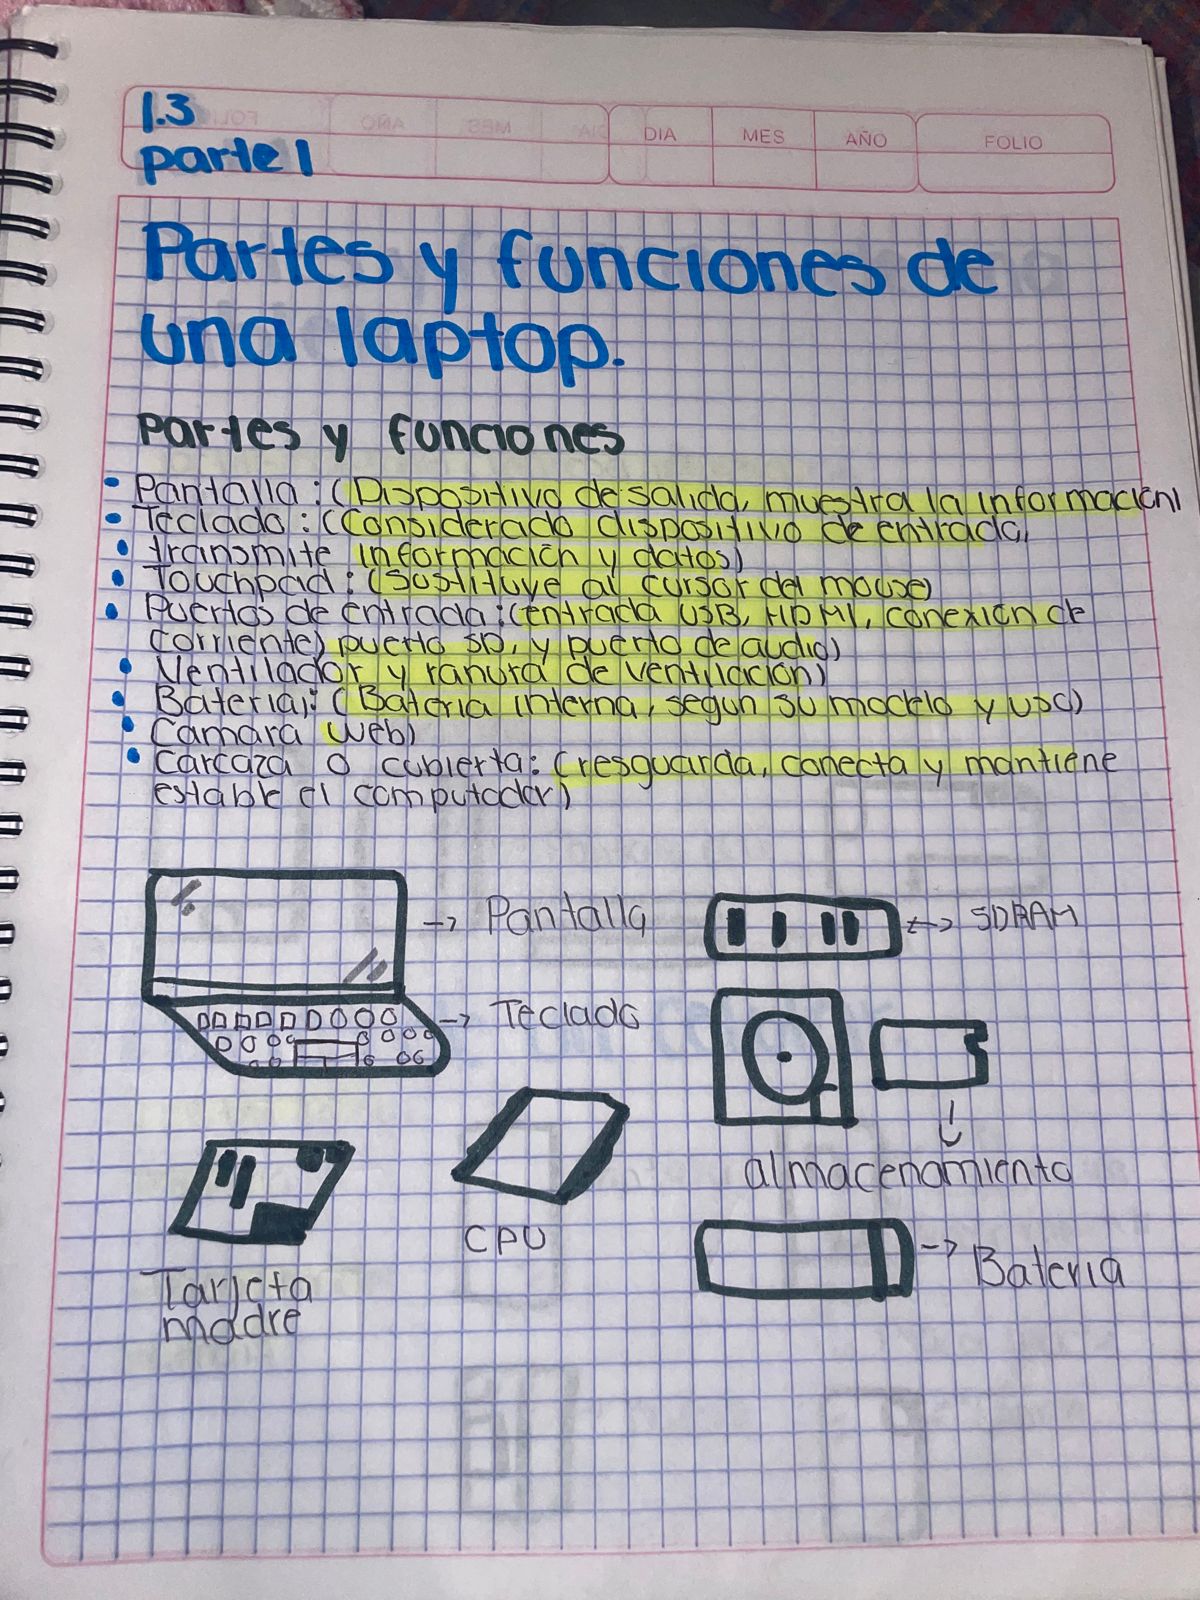 1.3
parte 1
DIA MES AÑO FOLIO
Partes y funciones de
una laptop.
Partes y funciones
• Pantalla: (Dispositivo de salida, muestra la información)
• Teclado: (Considerado dispositivo de entrada,
• transmite información y datos)
• Touchpad: (Sustituye al cursor del mouse)
• Puertos de entrada: (entrada USB, HDMI, conexión de
corriente) puerto SD, y puerto de audio)
• Ventilador y ranura de ventilación)
• Bateria): (Bateria interna, segun su modelo y uso)
• Camara web)
• Carcaza o cubierta: (resguarda, conecta y mantiene
estable el computador)
→ Pantalla
↔ SDRAM
→ Teclado
almacenamiento
CPU
→ Bateria
Tarjeta
madre